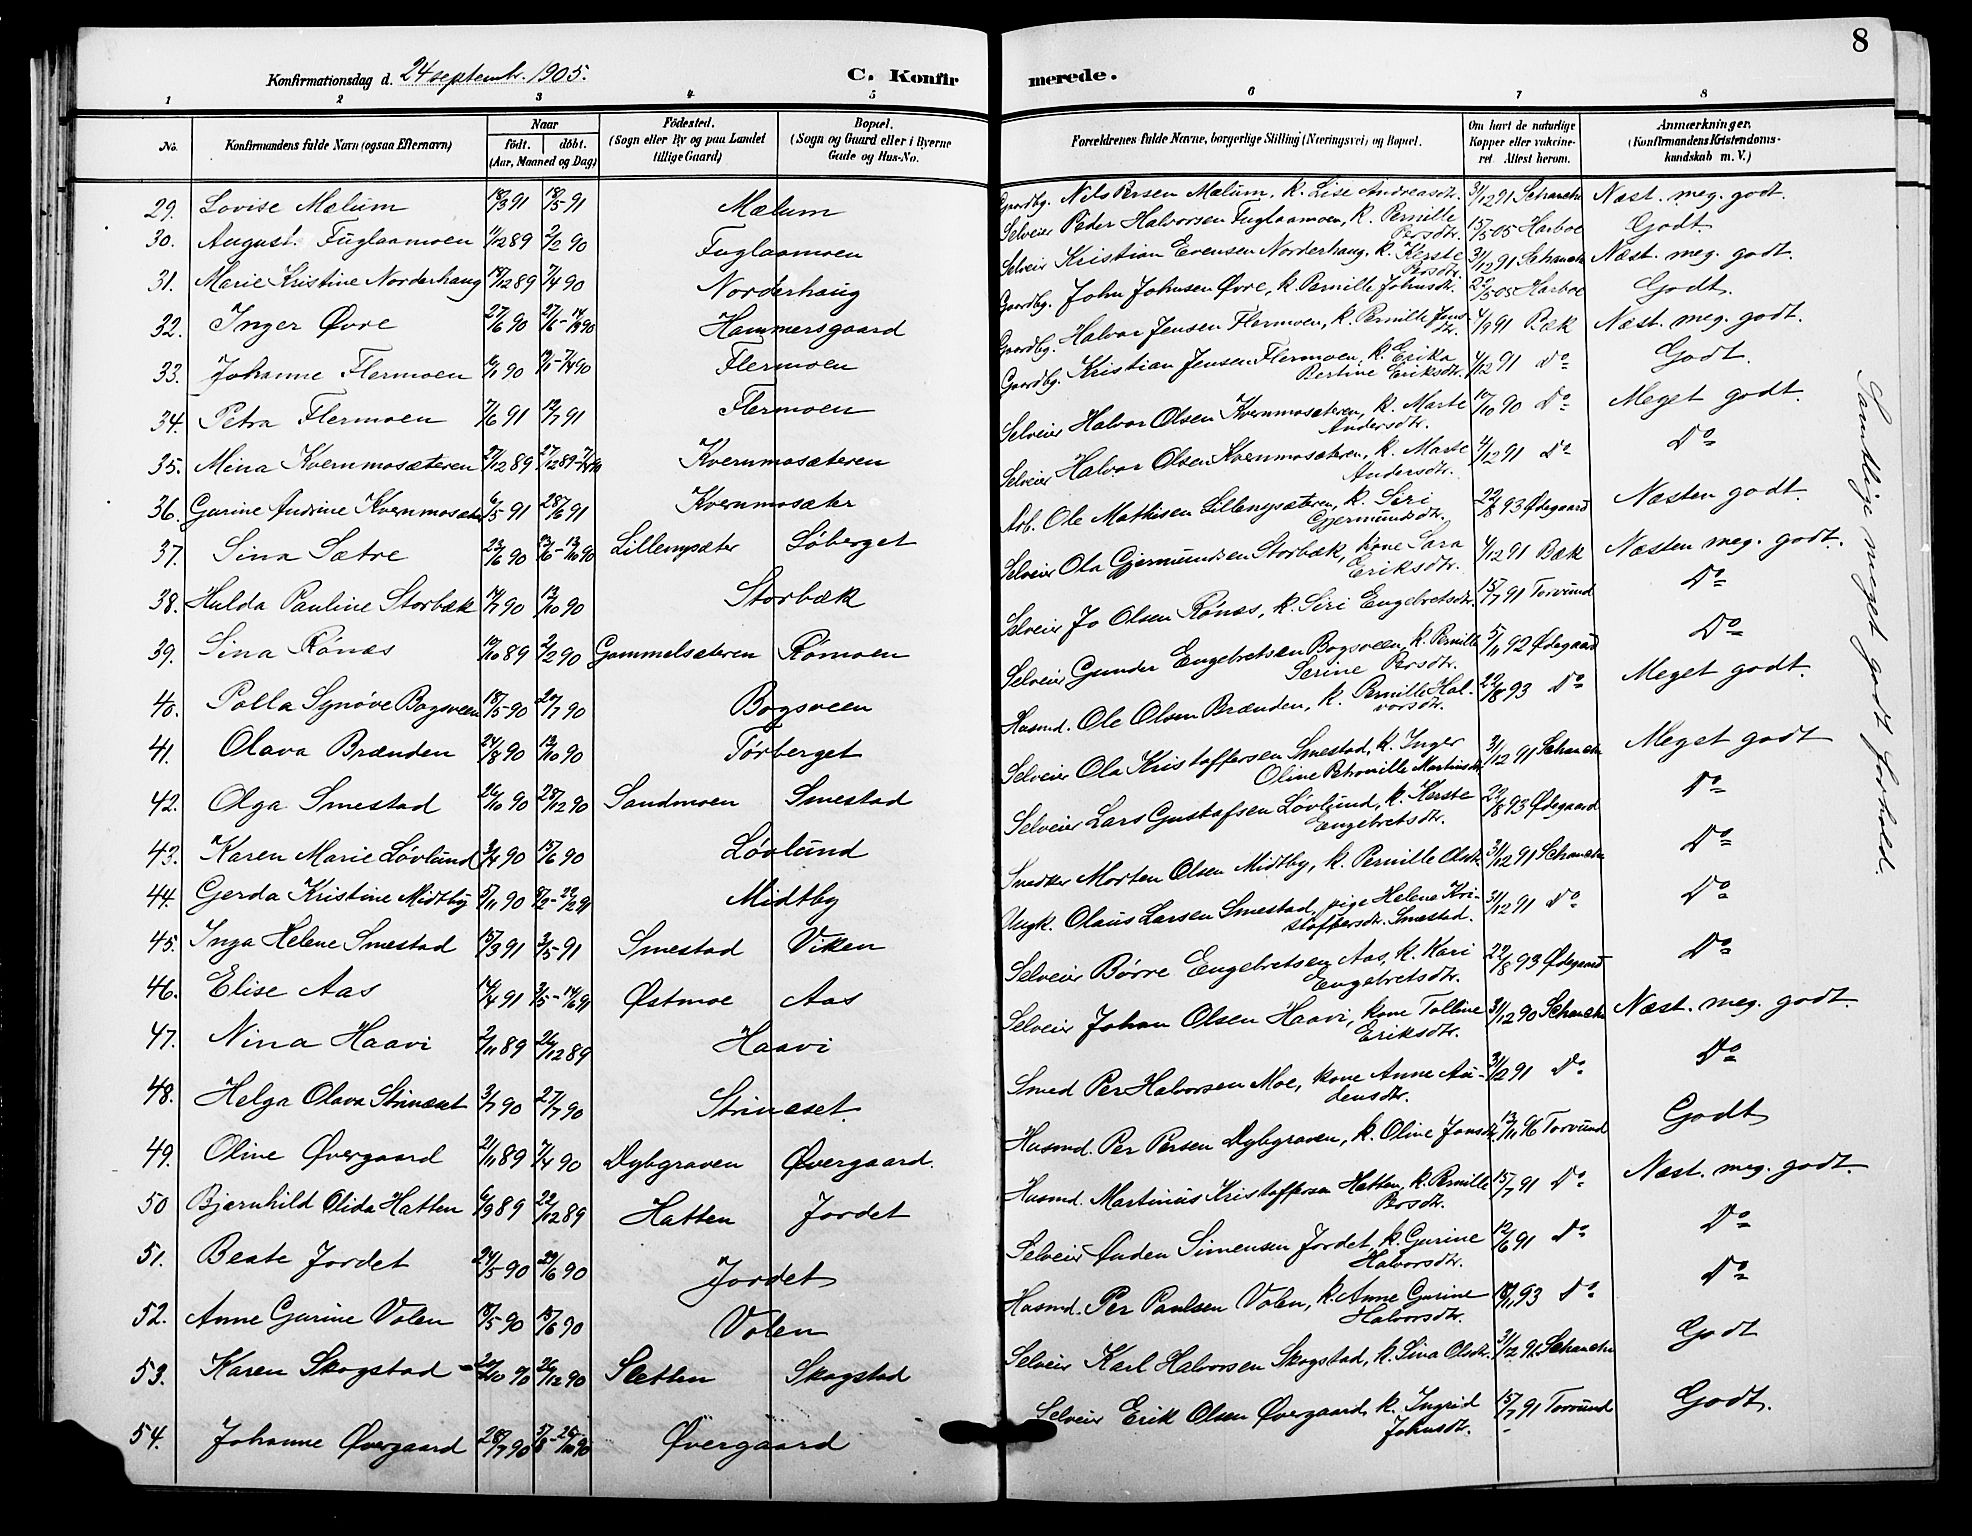 8
Konfirmationsdag d. 24 septembr. 1905. C. Konfirmerede.
1 2 3 4 5 6 7 8
No. Konfirmandens fulde Navn (ogsaa Efternavn) Naar født. døbt. (Aar, Maaned og Dag) Fødested. (Sogn eller By og paa Landet tillige Gaard) Bopæl. (Sogn og Gaard eller i Byerne Gade og Hus-No. Forældrenes fulde Navne, borgerlige Stilling (Næringsvei) og Bopæl. Om havt de naturlige Kopper eller vaccineret. Attest herom. Anmærkninger. (Konfirmandens Kristendomskundskab m. V.)
29. Lovise Mælum 18/3 91 18/5 91 Mælum Gaardbg. Nils Persen Mælum, k. Lise Andreasdtr. 31/12 91 Schanche Næst. meg. godt.
30. August Fuglaamoen 11/12 89 2/2 90 Fuglaamoen Selveier Peder Halvorsen Fuglaamoen, k. Pernille Persdtr. 15/5 05 Harboe Godt
31. Marie Kristine Norderhaug 18/12 89 7/4 90 Norderhaug Selveier Kristian Evensen Norderhaug, k. Kerste Persdtr. 31/12 91 Schanche Næst. meg. godt.
32. Inger Øvre 27/6 90 27/6 - 14/9 90 Hammersgaard Gaardbg. John Johnsen Øvre, k. Pernille Johnsdtr. 22/5 05 Harboe Godt.
33. Johanne Flermoen 90 7/4 90 Flermoen Gaardbg. Halvor Jensen Flermoen, k. Pernille Jensdtr. 4/9 91 Bæk Næst. meg. godt.
34. Petra Flermoen 7/6 91 12/7 91 Flermoen Gaardbg. Kristian Jensen Flermoen, k. Erika Bertine Eriksdtr. 4/12 91 Do Godt.
35. Mina Kvernmosæteren 27/12 89 27/12 89 - 7/4 90 Kvernmosæteren Selveier Halvor Olsen Kvernmosæteren, k. Marte Andersdtr. 10/10 90 Do Meget godt.
36. Gurine Andrine Kvernmosæter 6/5 91 28/6 91 Kvernmosæter Selveier Halvor Olsen Kvernmosæteren, k. Marte Andersdtr. 4/12 91 Do Do
37. Sina Sætre 23/6 90 90 Lillemysæter Løberget Arb. Ole Mathisen Lillemysæteren, k. Siri Gjermundsdtr. 22/8 93 Ødegaard Næsten godt.
38. Hulda Pauline Storbæk 14/7 90 12/10 90 Storbæk Selveier Ola Gjermundsen Storbæk, kone Sara Eriksdtr. 4/12 91 Bæk Næsten meg. godt.
39. Sina Rønæs 19/10 89 2/2 90 Gammelsæteren Rømoen Selveier Jo Olsen Rønæs, k. Siri Engebretsdtr. 15/7 91 Torvund Do
40. Polla Synøve Bogsveen 18/5 90 20/7 90 Bogsveen Selveier Gunder Engebretsen Bogsveen, k. Pernille Serine Persdtr. 5/11 92 Ødegaard Do
41. Olava Brænden 24/8 90 12/10 90 Tørberget Husmd. Ole Olsen Brænden, k. Pernille Halvorsdtr. 22/8 93 Do Meget godt.
42. Olga Smestad 26/10 90 28/12 90 Sandmoen Smestad Selveier Ola Kristoffersen Smestad, k. Inger Oline Petronille Martinsdtr. 31/12 91 Schanche Meget godt
43. Karen Marie Løvlund 3/4 90 15/6 90 Løvlund Selveier Lars Gustafsen Løvlund, k. Kerste Engebretsdtr. 22/8 93 Ødegaard Do
44. Gerda Kristine Midtby 5/11 90 91 Midtby Snedker Morten Olsen Midtby, k. Pernille Olsdtr. 31/12 91 Schanche Do
45. Inga Helene Smestad 15/3 91 3/5 91 Smestad Viken Ungk. Olaus Larsen Smestad, pige Helene Kristoffersdtr. Smestad. 31/12 91 Do Do
46. Elise Aas 14/4 91 3/5 - 14/6 91 Østmoe Aas Selveier Børre Engebretsen Aas, k. Kari Engebretsdtr. 22/8 93 Ødegaard Do
47. Nina Haavi 2/11 89 26/12 89 Haavi Selveier Johan Olsen Haavi, kone Tolline Eriksdtr. 31/12 90 Schanche Næst. meg. godt.
48. Helga Olava Strinæset 3/7 90 27/7 90 Strinæset. Smed Per Halvorsen Moe, kone Anne Audensdtr. 31/12 91 Do Do
49. Oline Øvergaard 21/11 89 7/4 90 Dybgraven Øvergaard. Husmd. Per Persen Dybgraven, k. Oline Jonsdtr. 13/11 96 Torvund Godt
50 Bjarnhild Olida Hatten 6/9 89 22/12 89 Hatten Jordet Husmd. Martinius Kristoffersen Hatten, k. Pernille Persdtr. 15/7 91 Do Næst. meg. godt.
51. Beate Jordet 24/5 90 29/6 90 Jordet Selveier Auden Simensen Jordet, k. Gurine Halvorsdtr. 12/6 91 Do Do
52. Anne Gurine Volen 18/5 90 15/6 90 Volen Husmd. Per Paulsen Volen, k. Anne Gurine Halvorsdtr. 93 Do Do
53. Karen Skogstad 20/10 90 26/12 90 Sletten Skogstad Selveier Karl Halvorsen Skogstad, k. Sina Olsdtr. 31/12 91. Schanche Godt
54. Johanne Øvergaard 28/7 90 90 Øvergaard Selveier Erik Olsen Øvergaard, k. Ingrid Johnsdtr. 15/7 91 Torvund Godt.
Samtlige meget godt forhold.